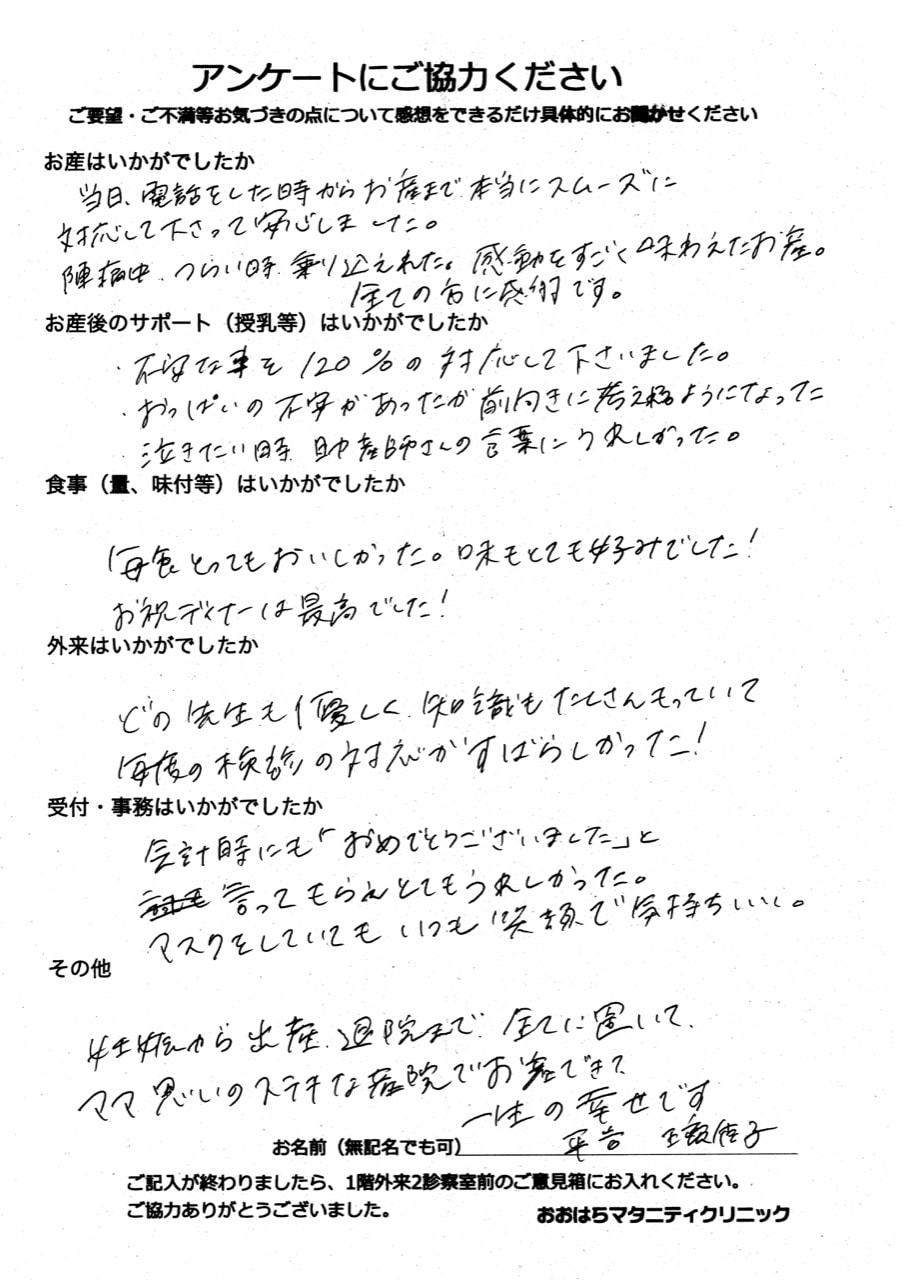 アンケートにご協力ください
ご要望・ご不満等お気づきの点について感想をできるだけ具体的にお聞かせください
お産はいかがでしたか
当日、電話をした時からお産まで本当にスムーズに
対応して下さって安心しました。
陣痛中、つらい時、乗り越えれた。感動をすごく味わえたお産。
全ての方に感謝です。
お産後のサポート（授乳等）はいかがでしたか
・不安な事を120%の対応して下さいました。
・おっぱいの不安があったが前向きに考え るようになった
・泣きたい時、助産師さんの言葉にうれしかった。
食事（量、味付等）はいかがでしたか
毎食とってもおいしかった。味もとても好みでした!
お祝ディナーは最高でした!
外来はいかがでしたか
どの先生も優しく、知識もたくさんもっていて
毎度の検診の対応がすばらしかった!
受付・事務はいかがでしたか
会計時にも「おめでとうございました」と
言ってもらえとてもうれしかった。
マスクをしていてもいつも笑顔で気持ちいい。
その他
妊娠から出産、退院まで、全てに置いて、
ママ思いのステキな産院でお産できて
一生の幸せです
お名前（無記名でも可）
ご記入が終わりましたら、1階外来2診察室前のご意見箱にお入れください。
ご協力ありがとうございました。
おおはらマタニティクリニック